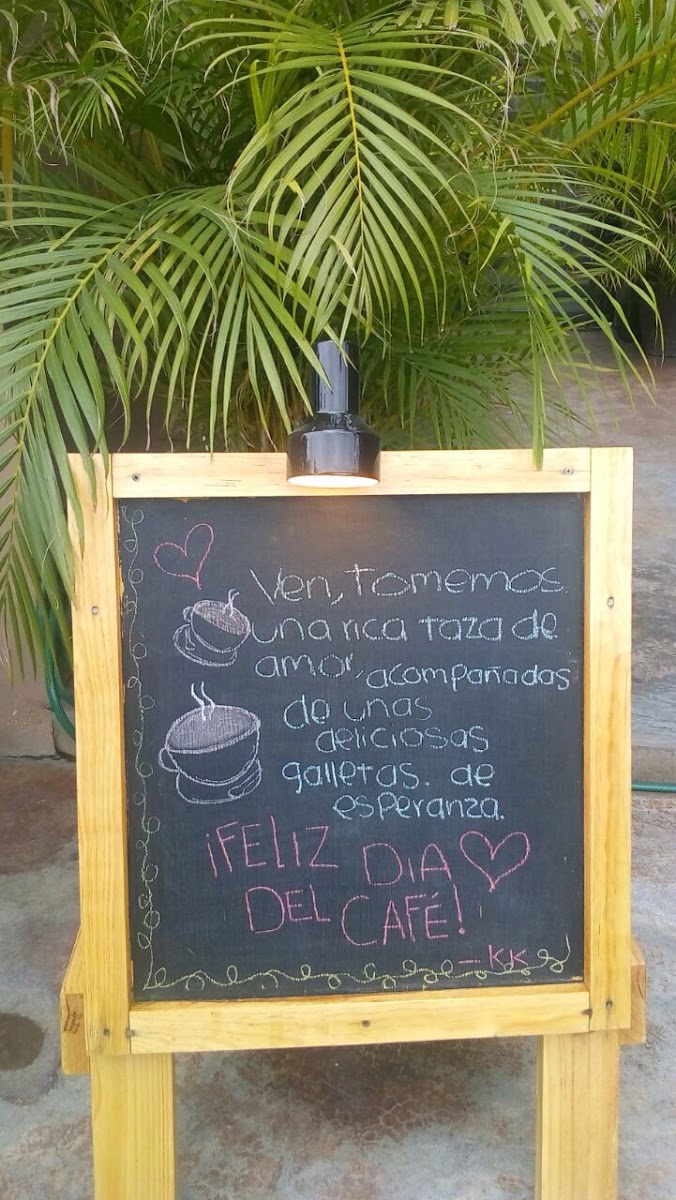 Ven, tomemos
una rica taza de
amor, acompañadas
de unas
deliciosas
galletas. de
esperanza.
¡FELIZ DIA
DEL CAFÉ!
- KK